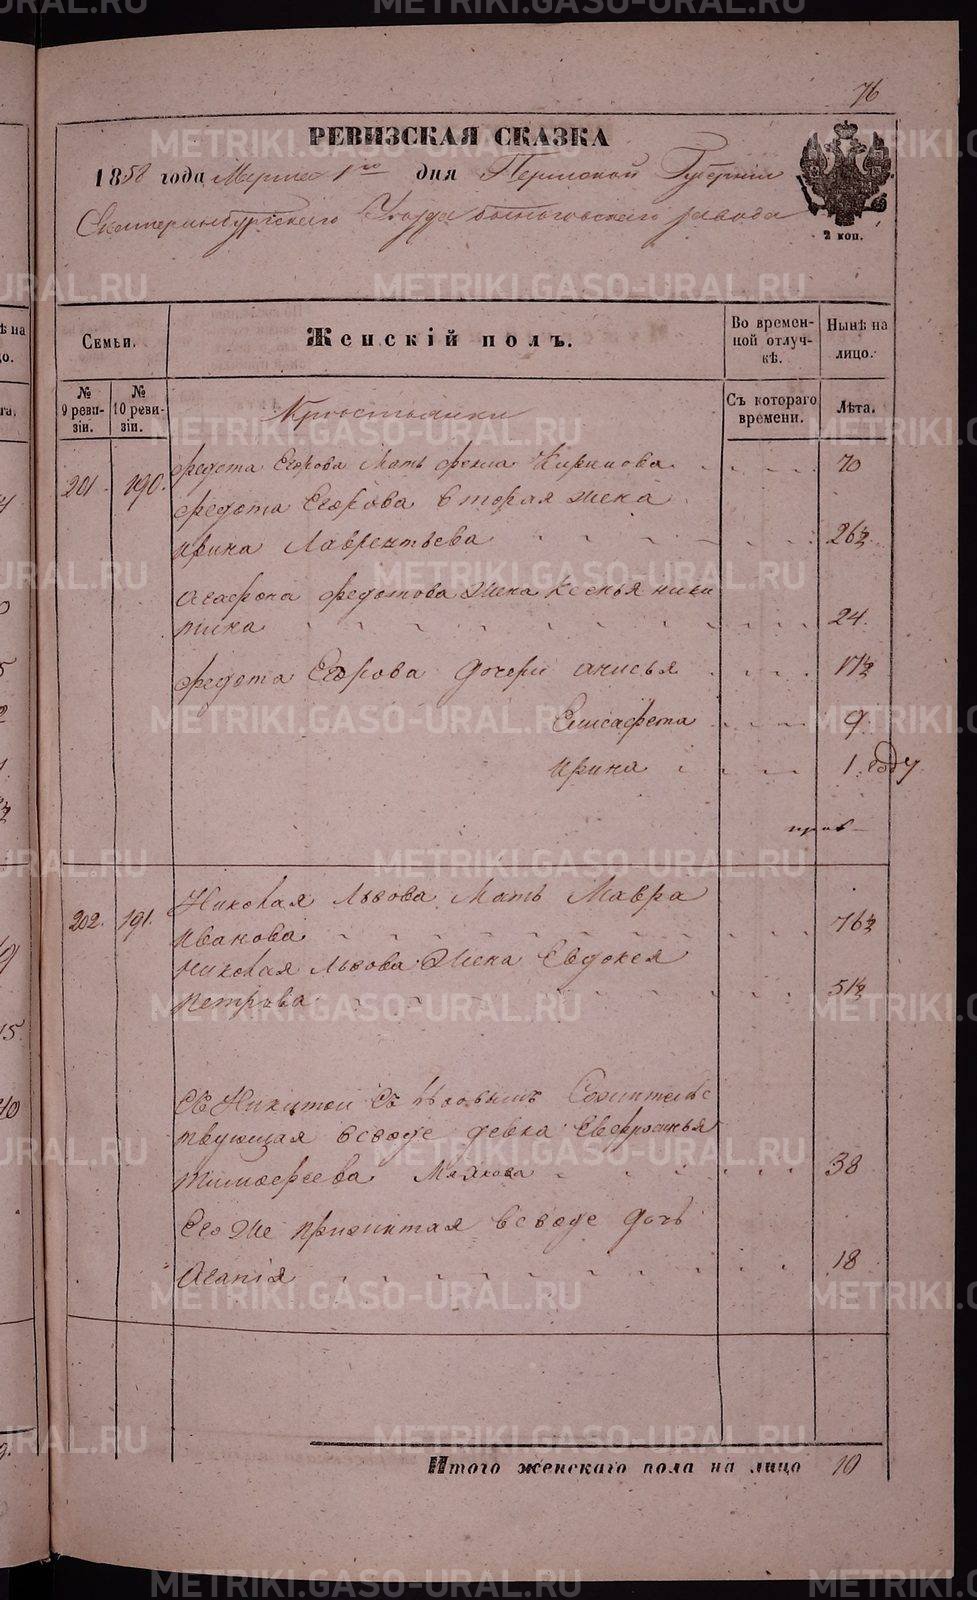 76
РЕВИЗСКАЯ СКАЗКА
1858 года, Марта 1го дня Пермской Губернии
Екатеринбургскаго Уезда Быньговскаго завода
2 коп.
Семьи. Женскій полъ. Во времен-ной отлуч-кѣ. Нынѣ на лицо.
№ 9 реви-зіи. № 10 реви-зіи. Съ котораго времени. Лѣта.
Крестьянки
201. 190. Федота Егорова Мать Фекла Кирилова 70
Федота Егорова вторая жена
Ирина Лаврентьева 26½
Агафона Федотова Жена Ксенья Ники
тина 24.
Федота Егорова дочери Анисья 17½
Елисафета 9.
Ирина 1. году
202. 191. Николая Львова Мать Мавра
Иванова 76½
Николая Львова Жена Евдокея
Петрова 51½
Сожительс
твующая вблоде девка Евфросинья
Тимофеева 38
Его же прижитая дочь
Агапія 18
Итого женскаго пола на лицо 10
METRIKI.GASO-URAL.RU